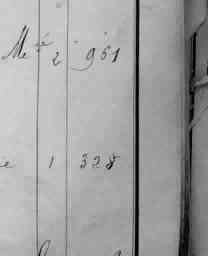 Mce 2 951
e 1 328